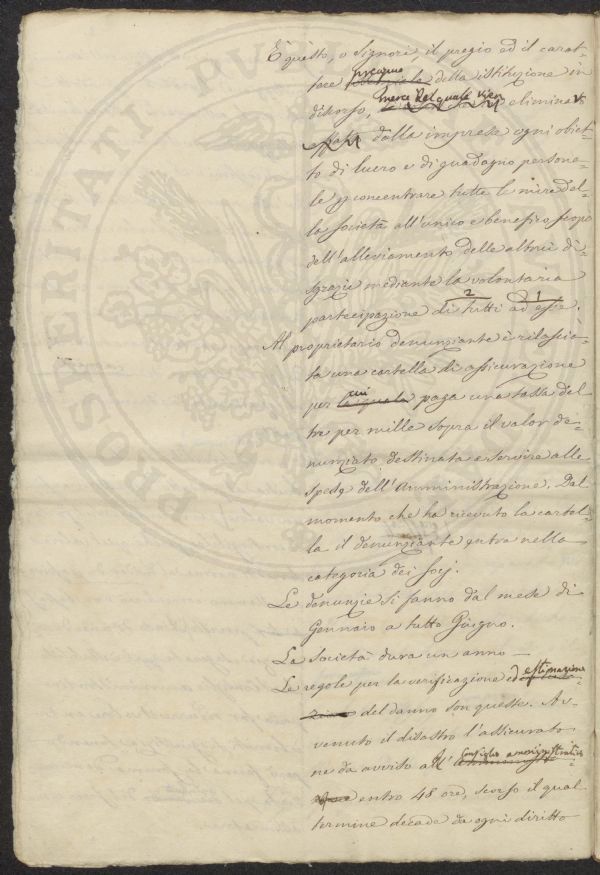 È questo, o Signori, il pregio ed il carat=
tere precipuo della istituzione in
discorso, mercè del quale vien elimina
dalla impresa ogni obiet=
to di lucro e di guadagno persona=
le concentrare tutte le mire del=
la società all'unico e benefico scopo
dell'alleviamento delle altrui di=
sgrazie mediante la volontaria
2 1
partecipazione di tutti ad esse.
Al proprietario denunziante è rilascia=
ta una cartella di assicurazione
per cui paga una tassa del
tre per mille sopra il valor de=
nunziato destinata a servire alle
spese dell'Amministrazione. Dal
momento che ha ricevuto la cartel=
la il denunziante entra nella
categoria dei Socj.
Le denunzie si fanno dal mese di
Gennaio a tutto Giugno.
La Società dura un anno —
Le regole per la verificazione ed estimazione
del danno son queste. Av=
venuto il disastro l'assicurato
ne dà avviso al Consiglio amministrativo
entro 48 ore, scorso il qual
termine decade da ogni diritto
PROSPERITATI PVB